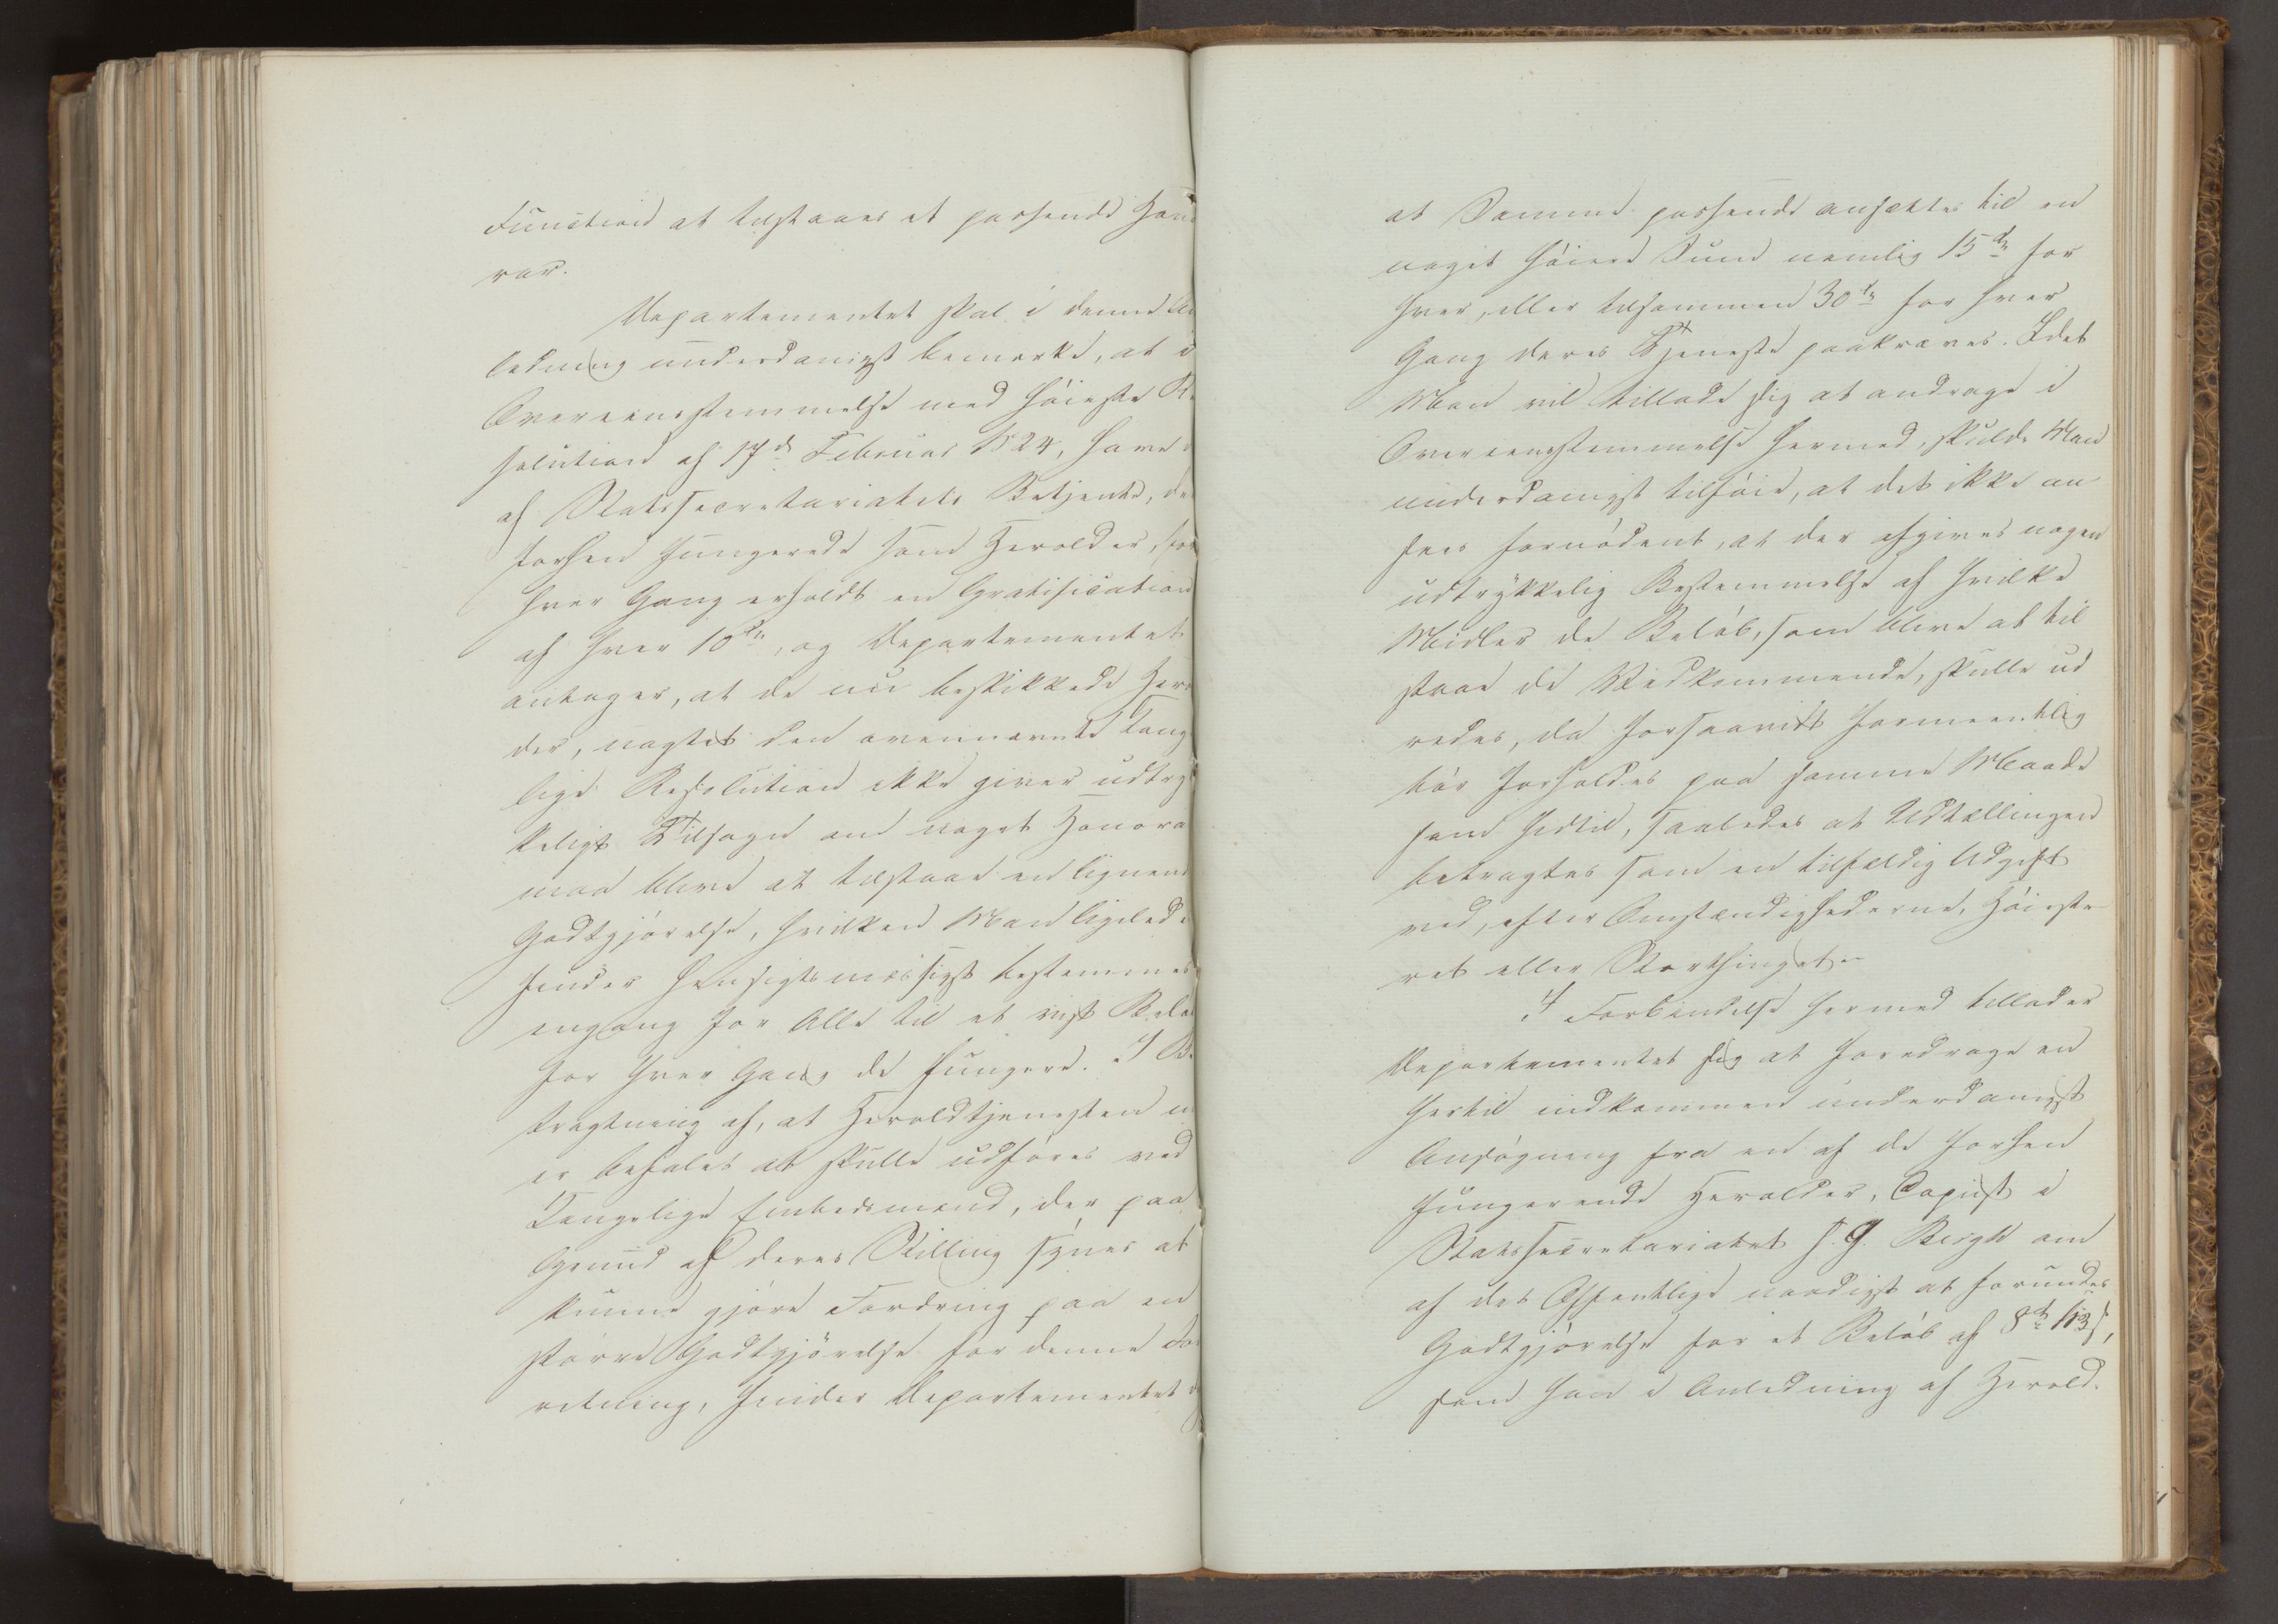 Function at tilstaaes et passende Hono
rar.
Departementet skal i denne An
ledning underdanigst bemærke, at i
Overeensstemmelse med Høieste Re
solution af 17de Februar 1824, have
af Statssecretariatets Betjente, der
forhen fungerede som Herolder, for
hver Gang erholdt en Gratification
af hver 10 Spd, og Departementet
antager, at de nu beskikkede Herol
der, uagtet den ovennævnte Konge
lige Resolution ikke giver udtryk
keligt Tilsagn om noget Honorar
maa blive at tilstaae en lignende
Godtgjørelse, hvilken Man ligeledes
finder hensigtsmæssigst bestemmes
engang for Alle til et vist Beløb
for hver Gang de fungere. I Be
tragtning af, at Heroldtjenesten nu
er befalet at skulle udføres ved
Kongelige Embedsmænd, der paa
Grund af deres Stilling synes at
kunne gjøre Fordring paa en
større Godtgjørelse for denne For
retning, finder Departementet
at Samme passende ansættes til en
noget høiere Sum nemlig 15 Spd for
hver, eller tilsammen 30 Spd for hver
Gang deres Tjeneste paakræves. Idet
Man vil tillade sig at andrage i
Overeensstemmelse hermed, skulde Man
underdanigst tilføie, at det ikke an
sees fornødent, at der afgives nogen
udtrykkelig Bestemmelse af hvilke
Midler de Beløb, som blive at til
staae de Vedkommende, skulle ud
redes, da forsaavidt formeentlig
bør forholdes paa samme Maade
som hidtil, saaledes at Udtællingen
betragtes som en tilfældig Udgift
ved, efter Omstændighederne, Høieste
ret eller Storthinget.
I Forbindelse hermed tillader
Departementet sig at foredrage en
hertil indkommen underdanigst
Ansøgning fra en af de forhen
fungerende Herolder, Copiist i
Statssecretariatet H. J. Bergh om
af det Offentlige naadigst at forundes
Godtgjørelse for et Beløb af 8 Spd 113 s,
som han i Anledning af Herold-